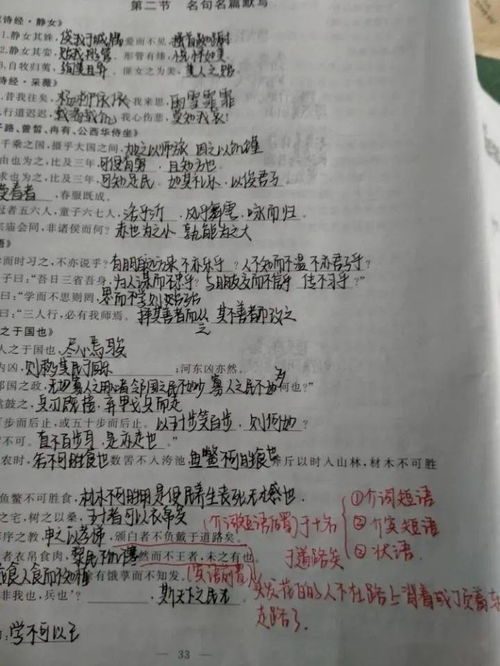 第二节 名句名篇默写
诗经·静女》
1.静女其姝，俟我于城隅 爱而不见，搔首踟蹰
2.静女其娈，贻我彤管 彤管有炜，说怿女美
3.自牧归荑，洵美且异 匪女之为美，美人之贻
诗经·采薇》
昔我往矣，杨柳依依 我来思，雨雪霏霏
行道迟迟，载渴载饥 我心伤悲，莫知我哀！
子路、曾皙、冉有、公西华侍坐》
千乘之国，摄乎大国之间，加之以师旅 因之以饥馑
由也为之，比及三年，可使有勇，且知方也
求也为之，比及三年，可使足民。如其礼乐，以俟君子
莫春者，春服既成，
冠者五六人，童子六七人，浴乎沂，风乎舞雩，咏而归
宗庙会同，非诸侯而何？赤也为之小 孰能为之大
语》
学而时习之，不亦说乎？有朋自远方来不亦乐乎？人不知而不愠 不亦君子乎？
子曰：“吾日三省吾身，为人谋而不忠乎？与朋友交而不信乎 传不习乎？”
曰：“学而不思则罔，思而不学则殆
曰：“三人行，必有我师焉。择其善者而从之 其不善者而改之
之于国也》
人之于国也，尽心焉耳
内凶，则移其民于河东 ；河东凶亦然。
邻国之政，无如寡人之用心者 邻国之民不加少 寡人之民不加多 何也？”
填然鼓之，兵刃既接，弃甲曳兵而走
步而后止，或五十步而后止。以五十步笑百步，则何如？
不可。直不百步耳 是亦走也”
农时，谷不可胜食也 数罟不入洿池，鱼鳖不可胜食也 斧斤以时入山林，材木不可胜
鱼鳖不可胜食，材木不可胜用 是使民养生丧死无憾也
之宅，树之以桑，五十者可以衣帛矣 (介词短语后置)于+名 ①介词短语
序之教，申之以孝悌，颁白者不负戴于道路矣。 ②介宾短语
者衣帛食肉，黎民不饥不寒 然而不王者，未之有也。 于道路矣 ③状语
彘食人食而不知检 有饿莩而不知发， (宾语前置) 头发花白的人不在路上背着或顶着东
非我也，兵也’？ ，斯天下之民至 走路了.
：学不可以已
33